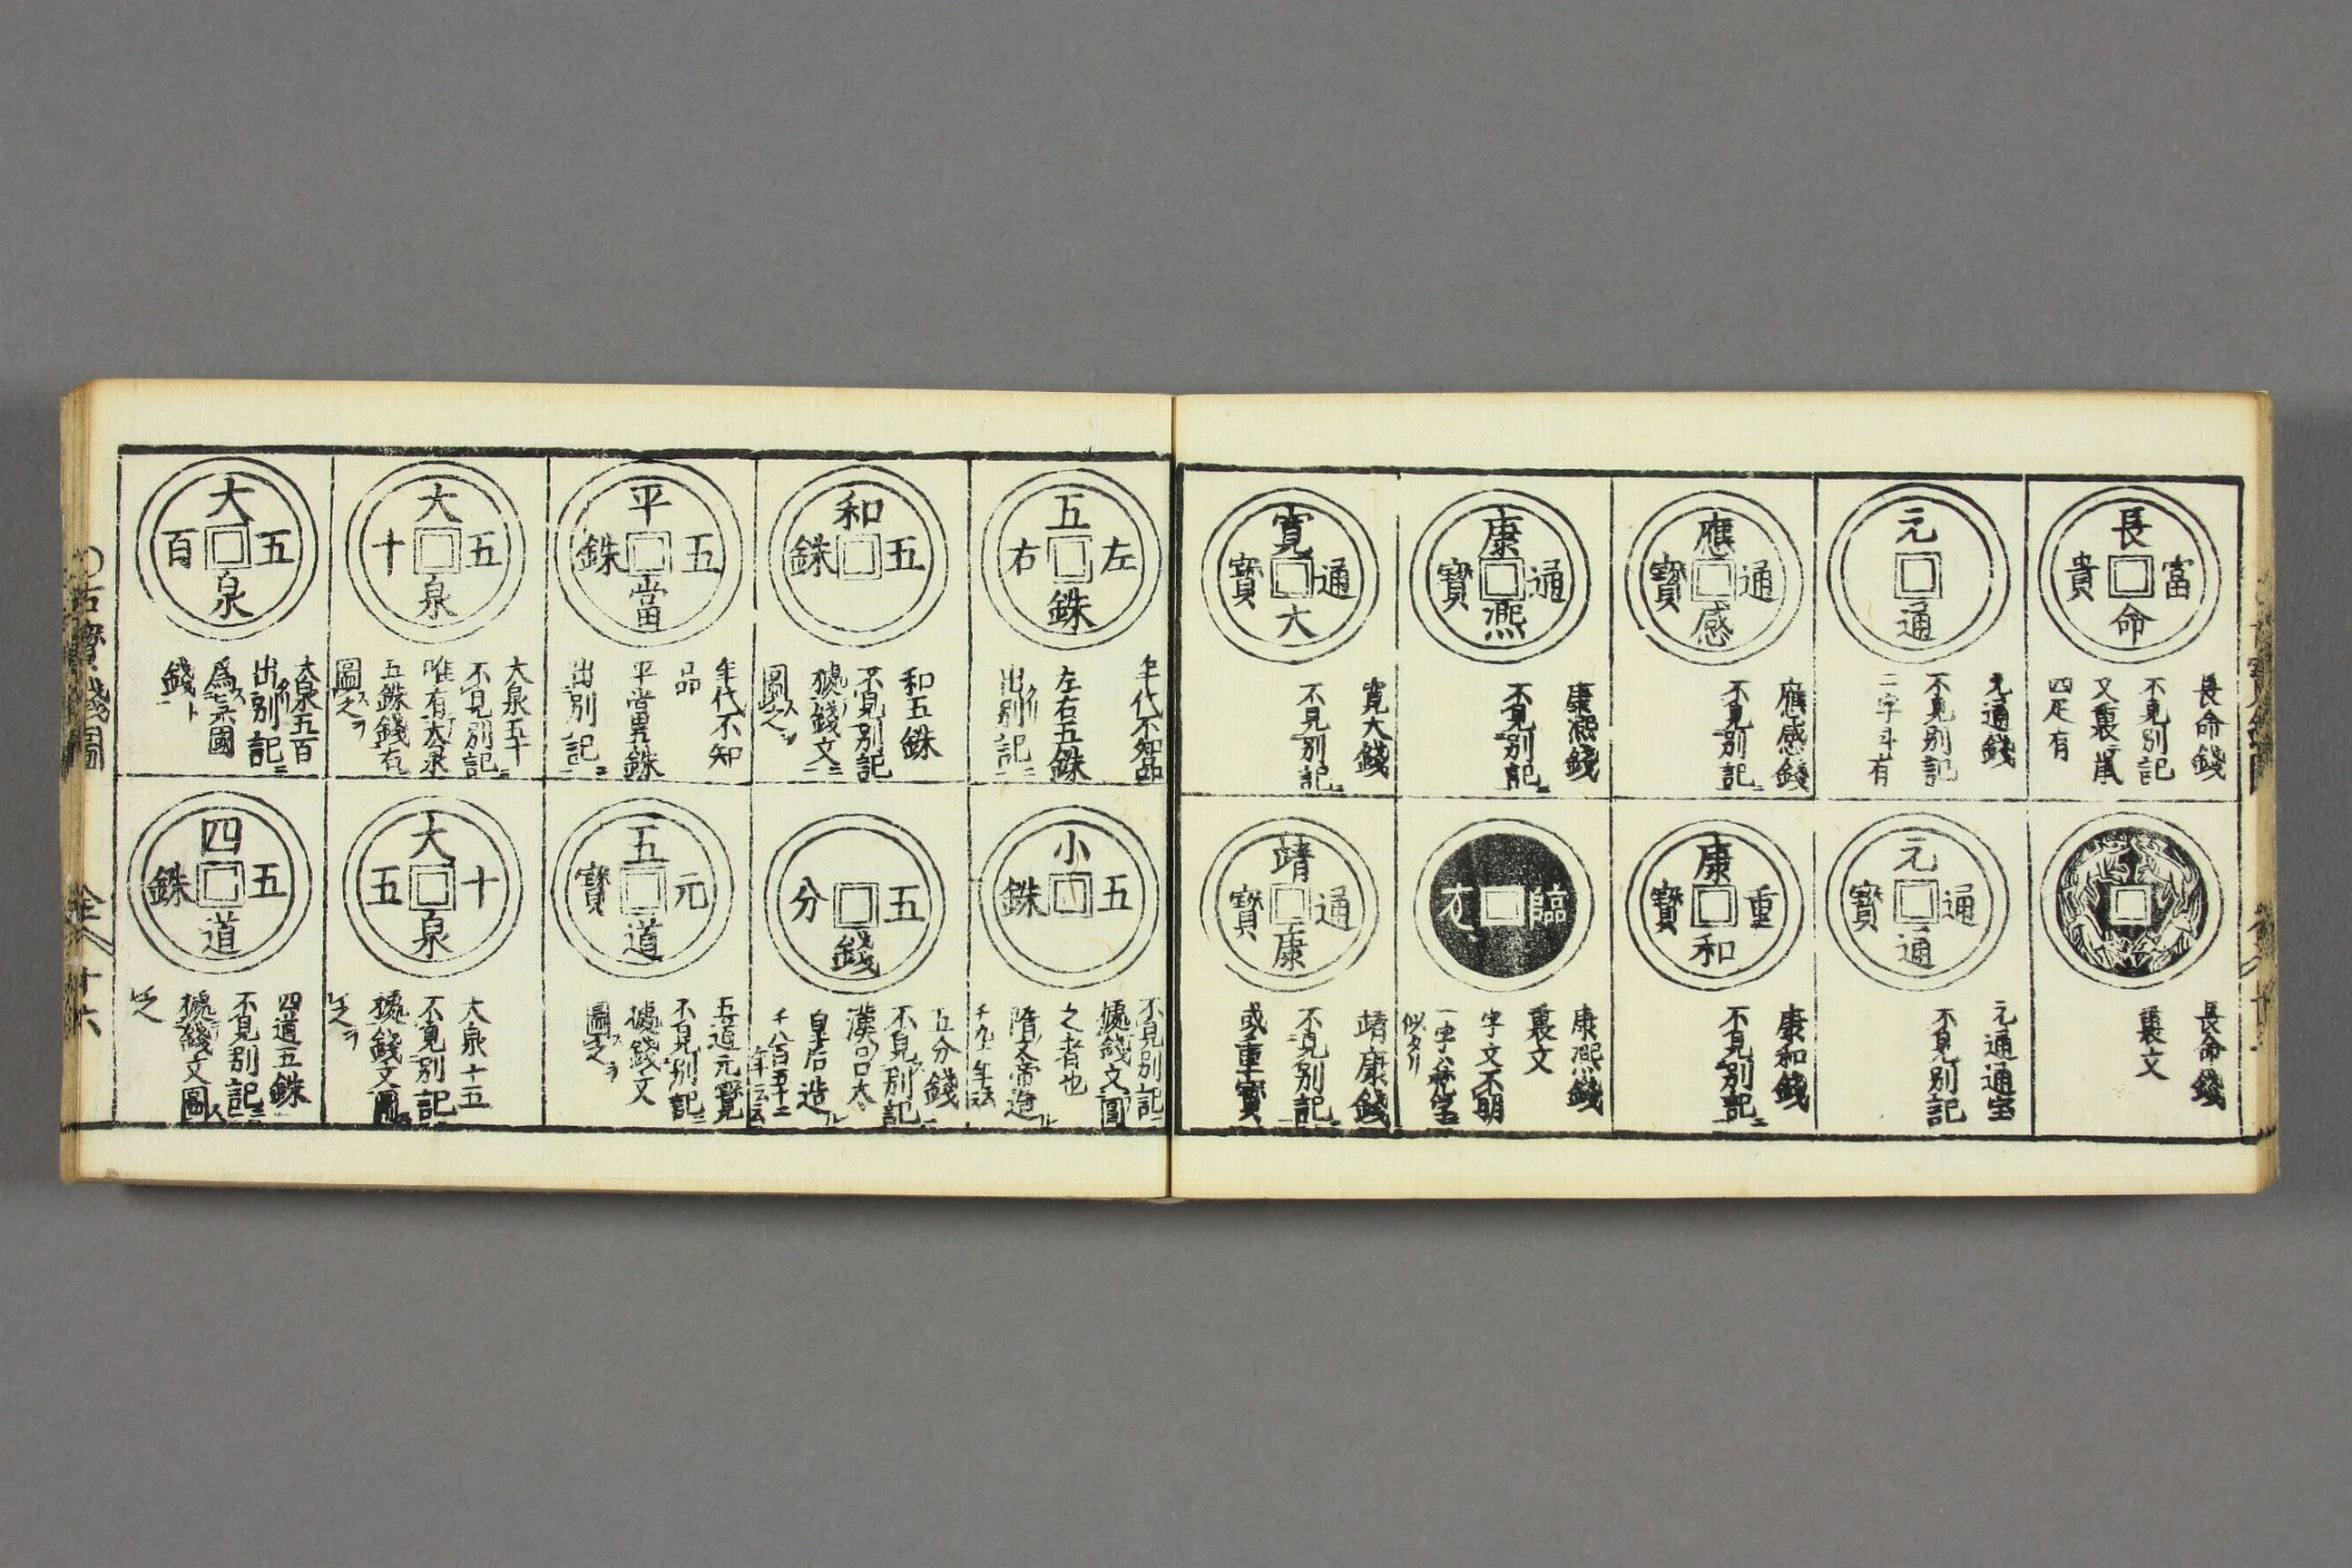 長命富貴
長命錢
不見別記
又裏
四疋有
元通
元通錢
不見別記
二字斗有
應感通寳
應感錢
不見別記ニ
康熈通寳
康熈錢
不見別記ニ
寛大通寳
寛大錢
不見別記ニ
長命錢
裏文
元通通寳
元通通宝
不見別記
康和重寳
康和錢
不見別記ニ
臨
康熈錢
裏文
字文不明
似タリ
靖康通寳
靖康錢
不見別記ニ
或重寳
五銖左右
年代不知品
左右五銖
出別記ニ
和五銖
和五銖
不見別記
據錢文ニ
圖之ヲ
平當五銖
年代不知
品
平當五銖
出別記ニ
大泉五十
大泉五十
不見別記ニ
唯有大泉
五銖錢有
圖之ヲ
大泉五百
大泉五百
出別記ニ
錢ト
小五銖
不見別記ニ
據錢文圖
之者也
隋文帝造
五分錢
五分錢
不見別記ニ
皇后造
千八百五十二
年云云
五道元寳
五道元寳
不見別記ニ
據錢文
圖之ヲ
大泉十五
大泉十五
不見別記ニ
據錢文圖
之ヲ
四道五銖
四道五銖
不見別記ニ
據錢文圖
之
古寳錢圖
全
十六